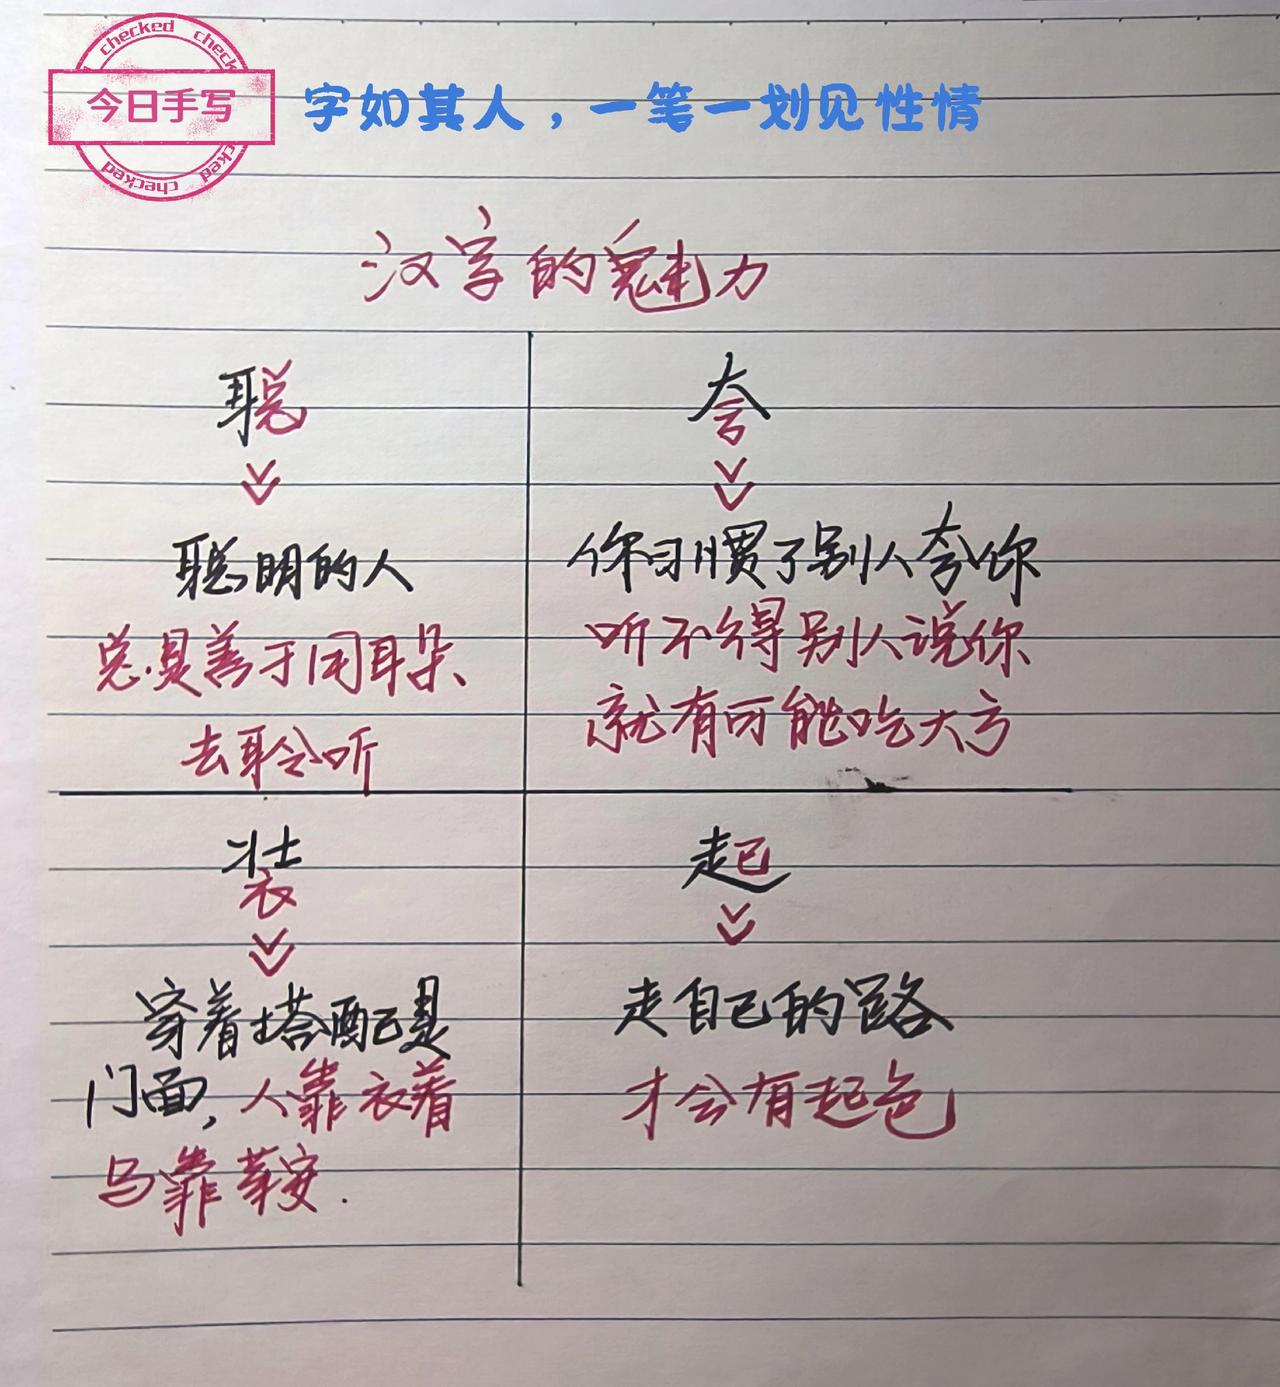 checked checked
今日手写
checked checked
字如其人，一笔一划见性情
汉字的魅力
聪
聪明的人
总是善于用耳朵
去聆听
夸
你习惯了别人夸你
听不得别人说你
就有可能吃大亏
装
穿着搭配是
门面，人靠衣着
马靠鞍.
起
走自己的路
才会有起色